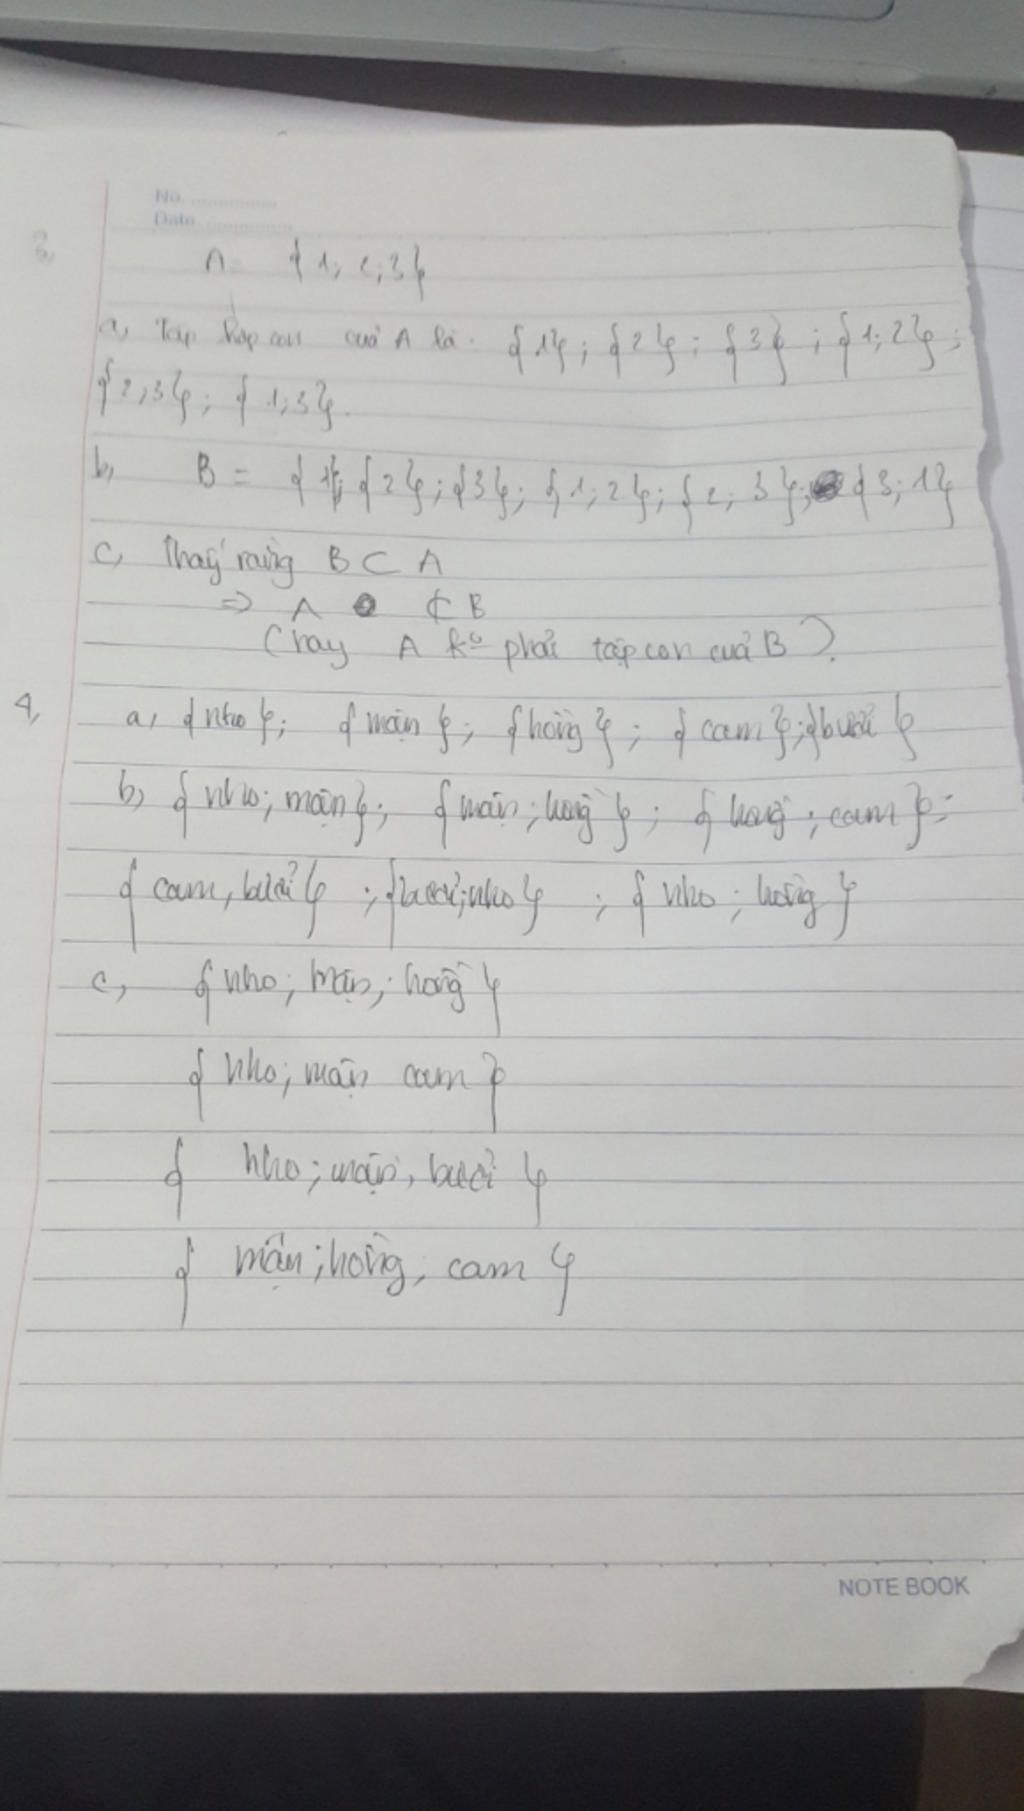 No. ............
Date ............
3,
A = { 1; 2; 3 }
a, Tập hợp con cuả A là: { 1 }; { 2 }; { 3 }; { 1; 2 };
{ 2; 3 }; { 1; 3 }.
b, B = { 1 }; { 2 }; { 3 }; { 1; 2 }; { 2; 3 }; { 3; 1 }
c, Thấy rằng B ⊂ A
=> A ⊄ B
(hay A ko phải tập con cuả B).
4, a, { nho }; { mận }; { hồng }; { cam }; { bưởi }
b, { nho; mận }; { mận; hồng }; { hồng; cam };
{ cam, bưởi }; { bưởi; nho }; { nho; hồng }
c, { nho; mận; hồng }
{ nho; mận cam }
{ nho; mận, bưởi }
{ mận; hồng, cam }
NOTE BOOK